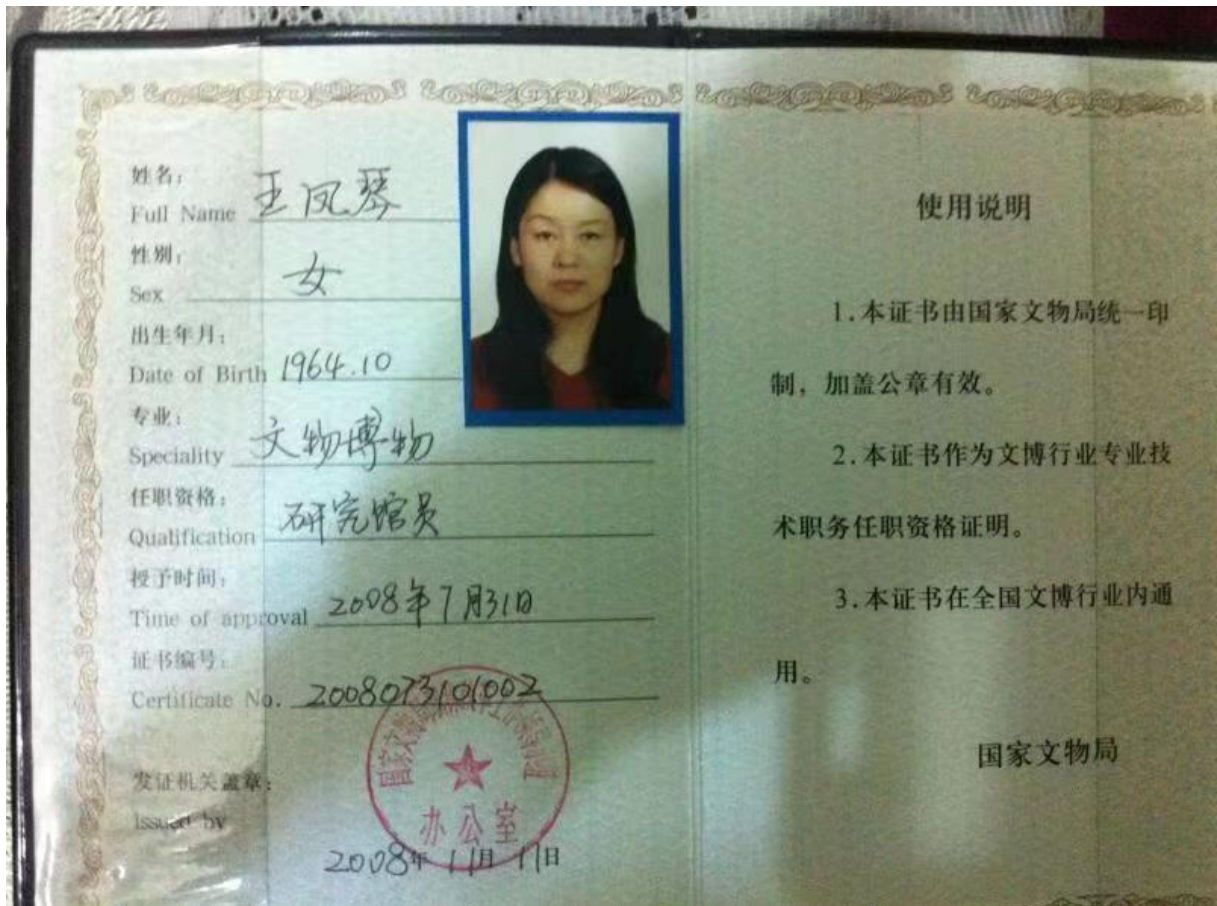 姓名：
Full Name 王凤琴
性别：
Sex 女
出生年月：
Date of Birth 1964.10
专业：
Speciality 文物博物
任职资格：
Qualification 研究馆员
授予时间：
Time of approval 2008年7月31日
证书编号：
Certificate No. 2008073101002
发证机关盖章：
Issued by
办公室
2008年11月11日
使用说明
1.本证书由国家文物局统一印
制，加盖公章有效。
2.本证书作为文博行业专业技
术职务任职资格证明。
3.本证书在全国文博行业内通
用。
国家文物局